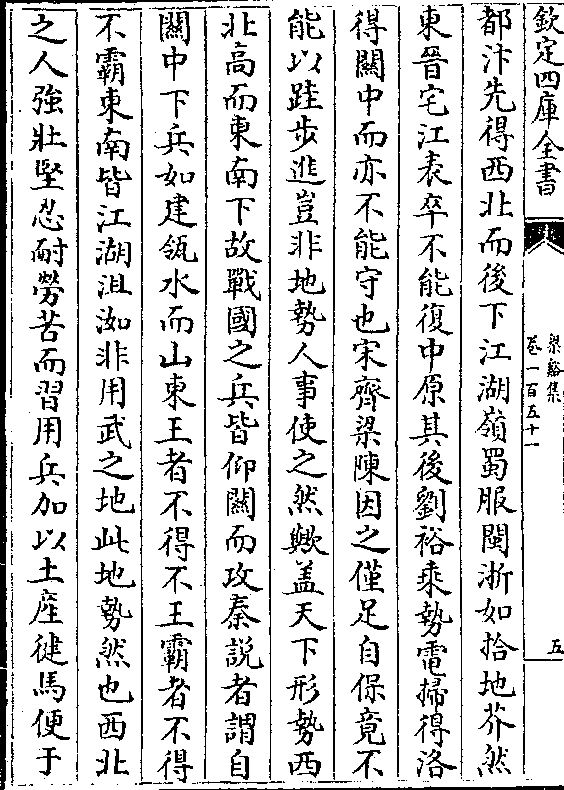 欽定四庫全書
梁谿集
卷一百五十一
五
都汴先得西北而後下江湖嶺蜀服閩浙如拾地芥然
東晉宅江表卒不能復中原其後劉裕乘勢電掃得洛
得關中而亦不能守也宋齊梁陳因之僅足自保竟不
能以跬步進豈非地勢人事使之然歟盖天下形勢西
北高而東南下故戰國之兵皆仰關而攻秦說者謂自
關中下兵如建瓴水而山東王者不得不王霸者不得
不霸東南皆江湖沮洳非用武之地此地勢然也西北
之人強壯堅忍耐勞苦而習用兵加以土產健馬便于